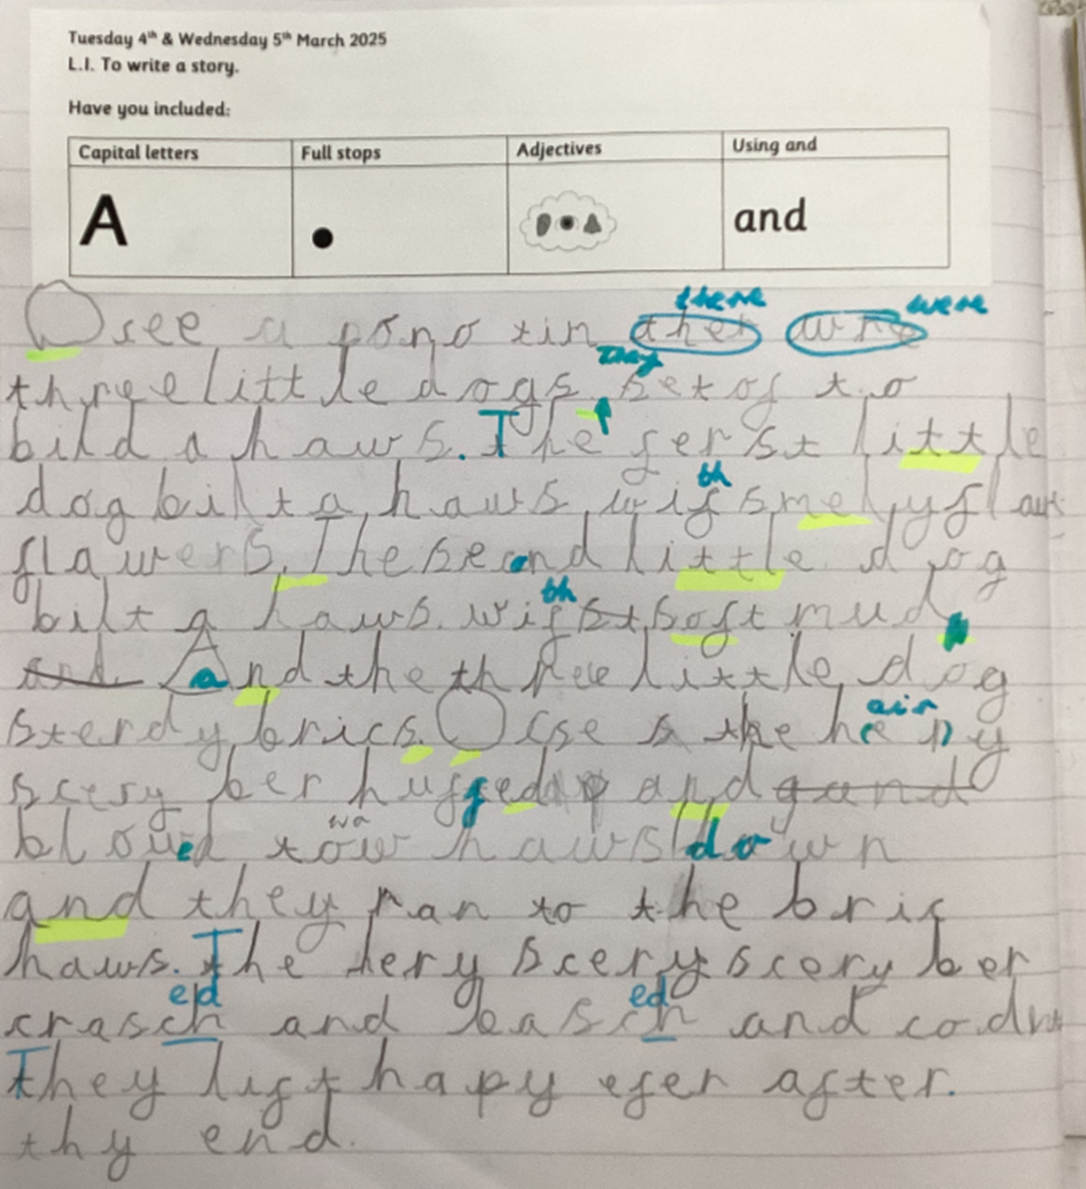 Tuesday 4th & Wednesday 5th March 2025
L.I. To write a story.
Have you included:
Capital letters Full stops Adjectives Using and
A . and
there were
Osee a pono tin ther wre
They
three little dogs setof to
bild a haws. The ferst little
th
dog bilt a haws wif smelyflaw
flawers. The second little dog
th
bilt a haws. wif st soft mud
and And the three little dog
sterdy brics. O cse s the heny
air
scery ber huffed and gand
wa
bloued tow haws down
and they ran to the bric
haws. The hery scery scery ber
ed ed
crasch and basch and codn
They lift hapy efer after.
thy end.